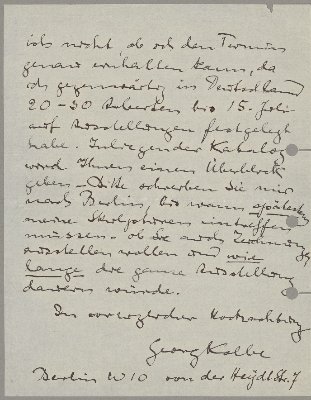 ich nicht, ob ich den Termin
genau einhalten kann, da
ich gegenwärtig in Deutschland
20-30 Arbeiten bis 15. Juli
auf Ausstellungen festgelegt
habe. Inliegender Katalog
wird Ihnen einen Überblick
geben – Bitte schreiben Sie mir
nach Berlin, bis wann spätestens
meine Skulpturen eintreffen
müssen. ob Sie auch Zeichnungen
ausstellen wollen und wie
lange die ganze Ausstellung
dauern würde.
In vorzüglicher Hochachtung
Georg Kolbe
Berlin W 10 von der Heydt Str. 7